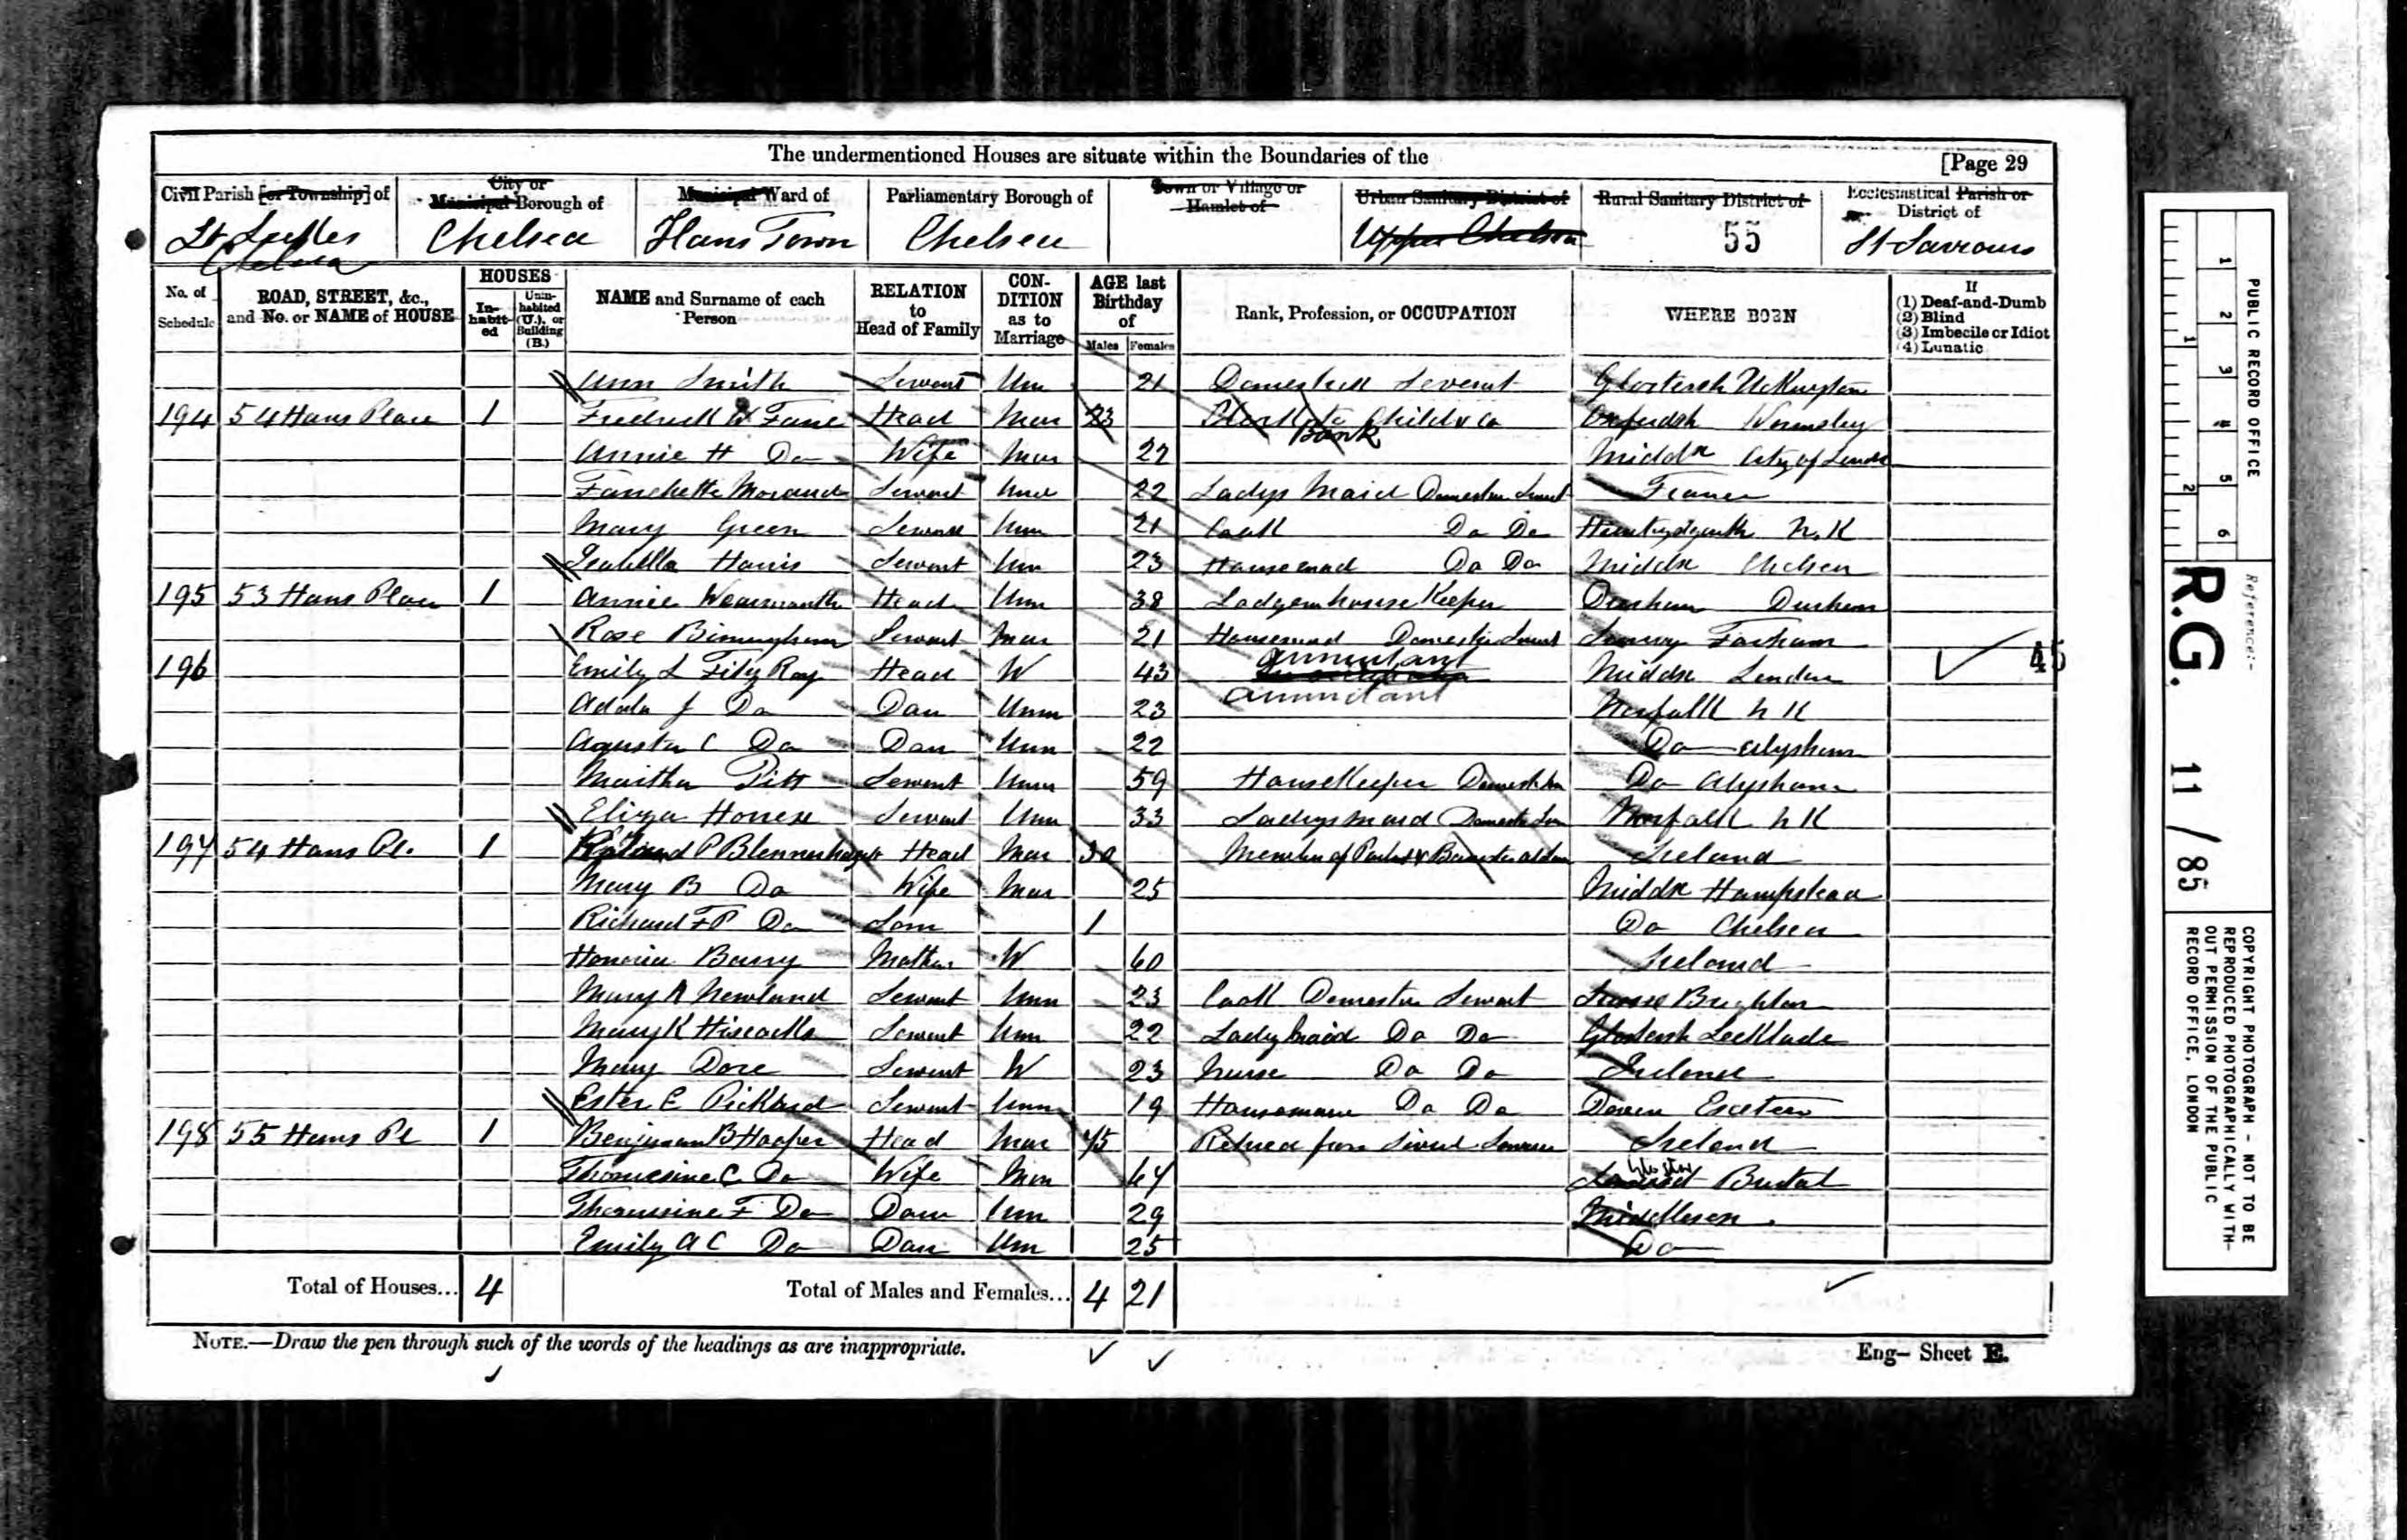 The undermentioned Houses are situate within the Boundaries of the [Page 29
Civil Parish [or Township] of St Lukes Chelsea
City or Municipal Borough of Chelsea
Municipal Ward of Hans Town
Parliamentary Borough of Chelsea
Town or Village or Hamlet of
Urban Sanitary District of Upper Chelsea
Rural Sanitary District of 55
Ecclesiastical Parish or District of St Saviours
No. of Schedule
ROAD, STREET, &c., and No. or NAME of HOUSE
HOUSES
In-habit-ed
Unin-habited (U.), or Building (B.)
NAME and Surname of each Person
RELATION to Head of Family
CON-DITION as to Marriage
AGE last Birthday of
Males Females
Rank, Profession, or OCCUPATION
WHERE BORN
If
(1) Deaf-and-Dumb
(2) Blind
(3) Imbecile or Idiot
(4) Lunatic
Ann Smith Servant Unm 21 Glostersh
194 54 Hans Place 1 Fredrick W Fane Head Mar 23 Childs & Co Bank Wormsley
Annie H Do Wife Mar 22 Middx City of
Servant 22 Ladys Maid France
Mary Green Servant Unm 21 Cook Do Do N.K
Isabella Harris Servant Unm 23 Housemaid Do Do Middx Chelsea
195 53 Hans Place 1 Annie Wearmouth Head Unm 38 Durham Durham
Rose Birmingham Servant Mar 21 Housemaid
196 Emily L Fitz Roy Head W 43 annuitant annuitant Middx London
Adela J Do Dau Unm 23 Norfolk N K
Agusta C Do Dau Unm 22 Do
Martha Pitt Servant Unm 59 HouseKeeper Do
Eliza Servant Unm 33 Ladys maid Norfolk N K
197 54 Hans Pl. 1 P Blennerhassett Head Mar 30 Ireland
Mary B Do Wife Mar 25 Middx Hampstead
Richard F P Do Son 1 Do Chelsea
Honoria Barry Mother W 60 Ireland
Mary A Newland Servant Unm 23 Cook Domestic Servant Brighton
Mary K Hiscocks Servant Unm 22 Lady Maid Do Do Glostersh
Mary Dore Servant W 23 Nurse Do Do Ireland
Ester E Servant Unm 19 Do Do Devon Exeter
198 55 Hans Pl 1 Benjiman B Hooper Head Mar 75 Retired from Ireland
Thomasine C Do Wife Mar Gloster
Thomasine F Do Dau Unm 29 Middlesex
Emily A C Do Dau Unm 25 Do
45
Total of Houses... 4 Total of Males and Females... 4 21
NOTE.—Draw the pen through such of the words of the headings as are inappropriate.
Eng— Sheet E.
1 2 3 4 5 6
1 2
PUBLIC RECORD OFFICE
Reference:-
R.G. 11 / 85
COPYRIGHT PHOTOGRAPH - NOT TO BE
REPRODUCED PHOTOGRAPHICALLY WITH-
OUT PERMISSION OF THE PUBLIC
RECORD OFFICE, LONDON